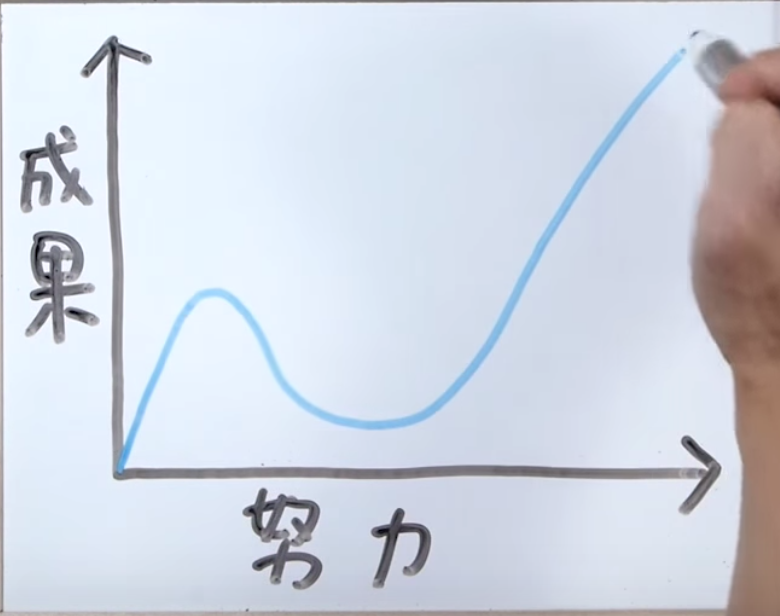 成果
努力